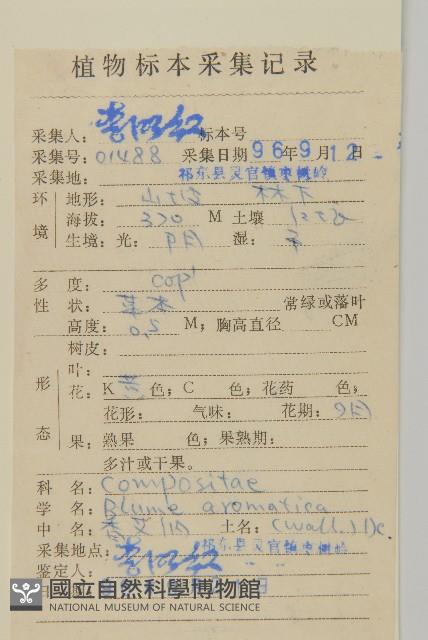 植物标本采集记录
采集人: 标本号
采集号: 01488 采集日期 96年9月12日
采集地: 祁东县灵官镇枣树岭
环境
地形: 山坡 林下
海拔: 330 M 土壤
生境: 光: 阴 湿: 干
多度: cop¹
性状: 草本 常绿或落叶
高度: 0.5 M; 胸高直径 CM
形态
树皮:
叶:
花: K 色; C 色; 花药 色;
花形: 气味: 花期: 9月
果: 熟果 色; 果熟期:
多汁或干果。
科名: Compositae
学名: Blume aromatica
中名: 香艾纳 土名: (Wall.) DC.
采集地点: 祁东县灵官镇枣树岭
鉴定人:
日
國立自然科學博物館
NATIONAL MUSEUM OF NATURAL SCIENCE